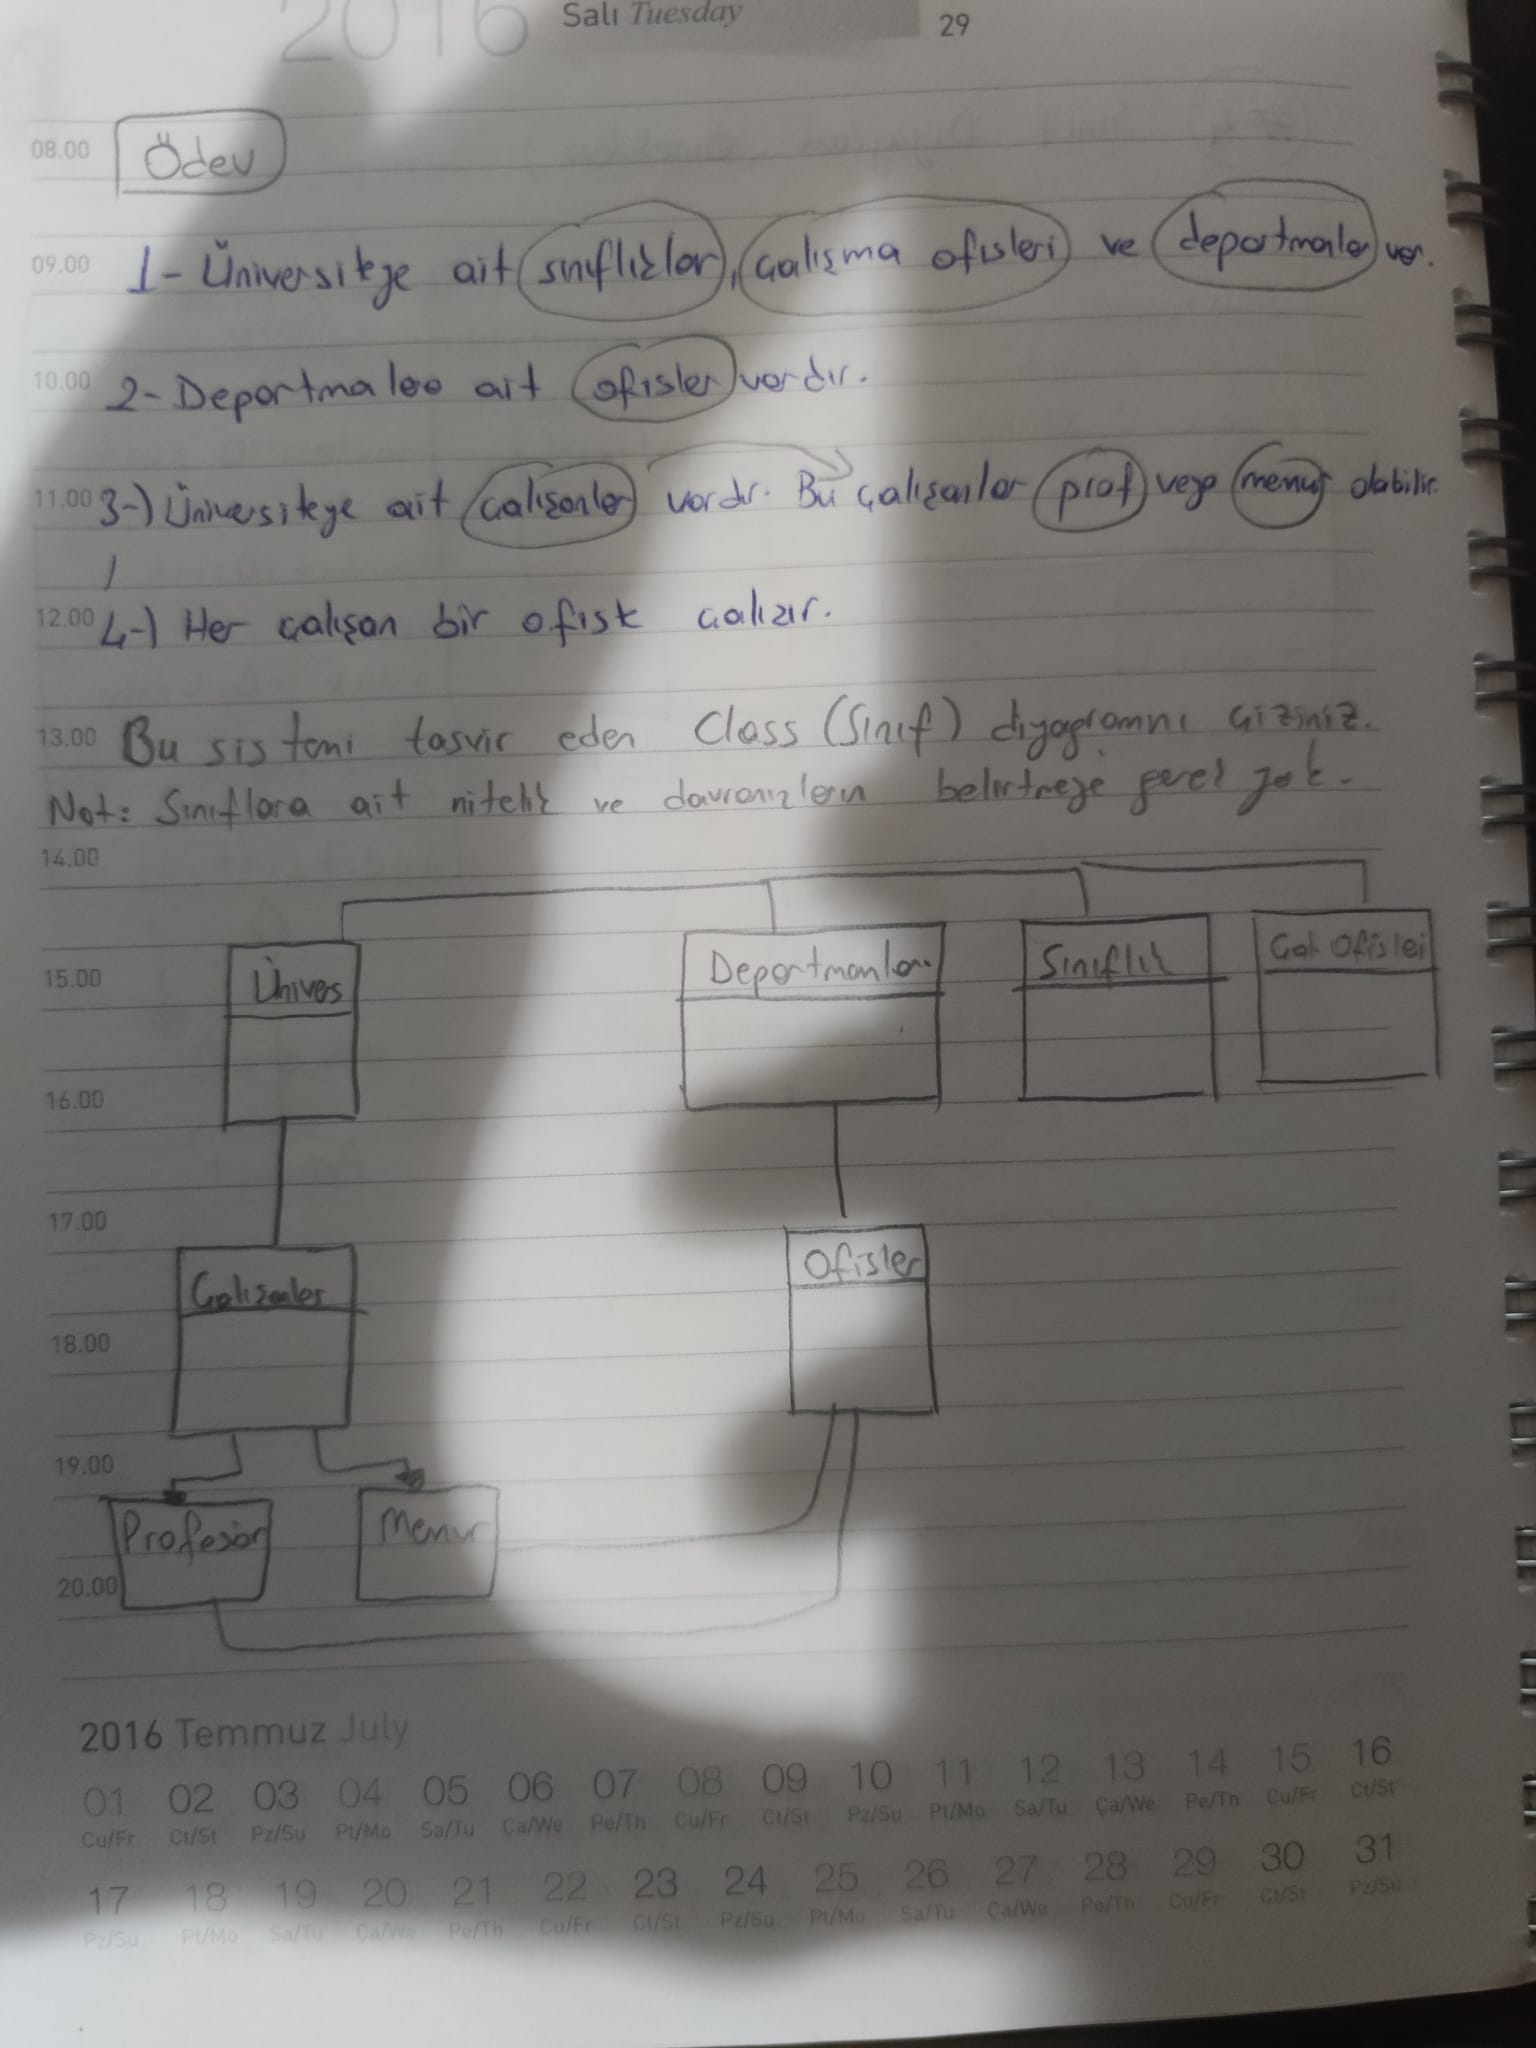 2016 Salı Tuesday 29
08.00 Ödev
09.00 1- Üniversiteye ait sınıflıklar, çalışma ofisleri ve departmanlar var.
10.00 2- Departmalea ait ofisler vardır.
11.00 3-) Üniversiteye ait çalışanlar vardır. Bu çalışanlar prof veya memur olabilir.
12.00 4-) Her çalışan bir ofiste çalışır.
13.00 Bu sistemi tasvir eden Class (Sınıf) diyagramnı çiziniz.
Not: Sınıflara ait nitelik ve davranışların belirtmeye gerek yok.
14.00
15.00 Ünivers Departmanlar Sınıflık Çal. Ofislei
16.00
17.00
Çalışanlar Ofisler
18.00
19.00
Profesör Memur
20.00
2016 Temmuz July
01 02 03 04 05 06 07 08 09 10 11 12 13 14 15 16
Cu/Fr Ct/St Pz/Su Pt/Mo Sa/Tu Ça/We Pe/Th Cu/Fr Ct/St Pz/Su Pt/Mo Sa/Tu Ça/We Pe/Th Cu/Fr Ct/St
17 18 19 20 21 22 23 24 25 26 27 28 29 30 31
Pz/Su Pt/Mo Sa/Tu Ça/We Pe/Th Cu/Fr Ct/St Pz/Su Pt/Mo Sa/Tu Ça/We Pe/Th Cu/Fr Ct/St Pz/Su